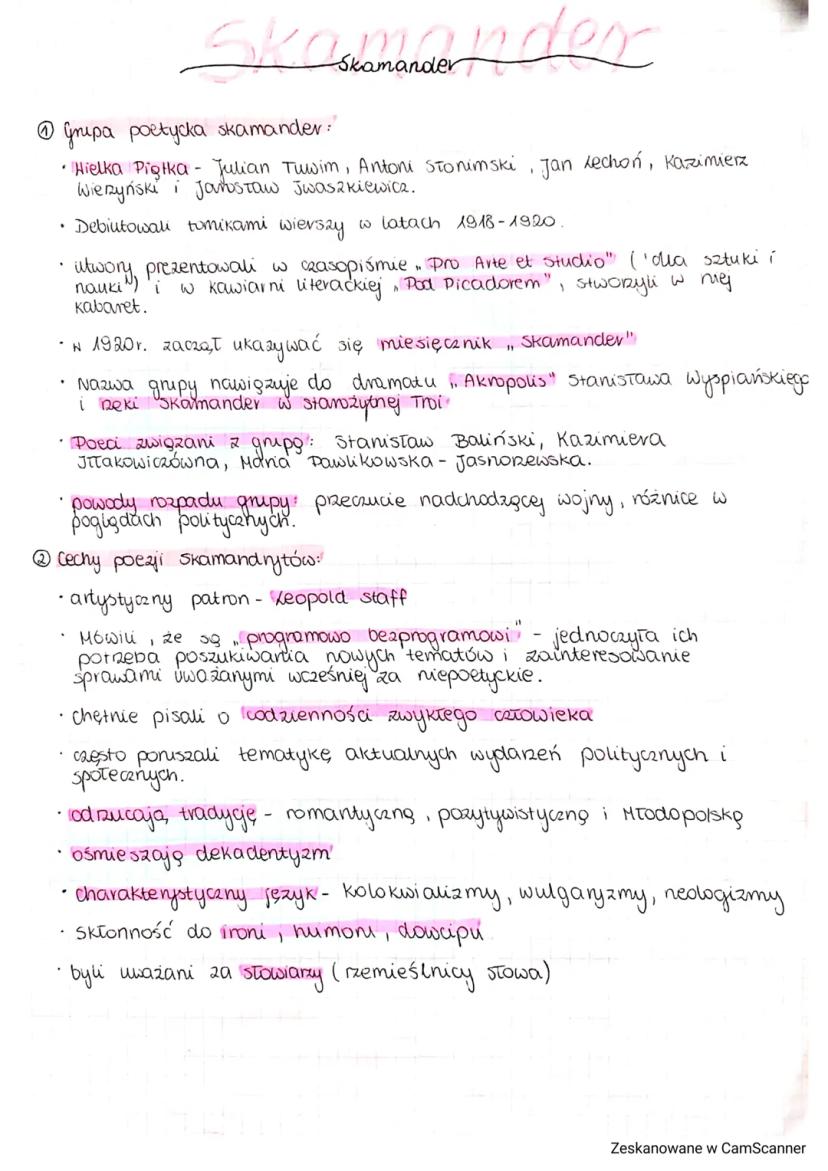 Skamander
Skamander
① Grupa poetycka skamander:
· Wielka Piątka - Julian Tuwim, Antoni Słonimski, Jan Lechoń, Kazimierz
Wierzyński i Jarosław Iwaszkiewicz.
· Debiutowali tomikami wierszy w latach 1918-1920.
· utwory prezentowali w czasopiśmie „Pro Arte et Studio" ('dla sztuki i
nauki") i w kawiarni literackiej „Pod Picadorem", stworzyli w niej
kabaret.
· W 1920r. zaczął ukazywać się miesięcznik „Skamander"
· Nazwa grupy nawiązuje do dramatu „Akropolis" Stanisława Wyspiańskiego
i rzeki Skamander w starożytnej Troi
· Poeci związani z grupą: Stanisław Baliński, Kazimiera
Iłłakowiczówna, Maria Pawlikowska - Jasnorzewska.
· powody rozpadu grupy: przeczucie nadchodzącej wojny, różnice w
poglądach politycznych.
② Cechy poezji skamandrytów:
· artystyczny patron - Leopold staff
· Mówili, że są „programowo bezprogramowi" - jednoczyła ich
potrzeba poszukiwania nowych tematów i zainteresowanie
sprawami uważanymi wcześniej za niepoetyckie.
· chętnie pisali o codzienności zwykłego człowieka
· często poruszali tematykę aktualnych wydarzeń politycznych i
społecznych.
· odrzucają tradycję - romantyczną, pozytywistyczną i Młodopolską
· ośmieszają dekadentyzm
· charakterystyczny język - kolokwializmy, wulgaryzmy, neologizmy
· skłonność do ironi, humoru, dowcipu
· byli uważani za słowiarzy (rzemieślnicy słowa)
Zeskanowane w CamScanner